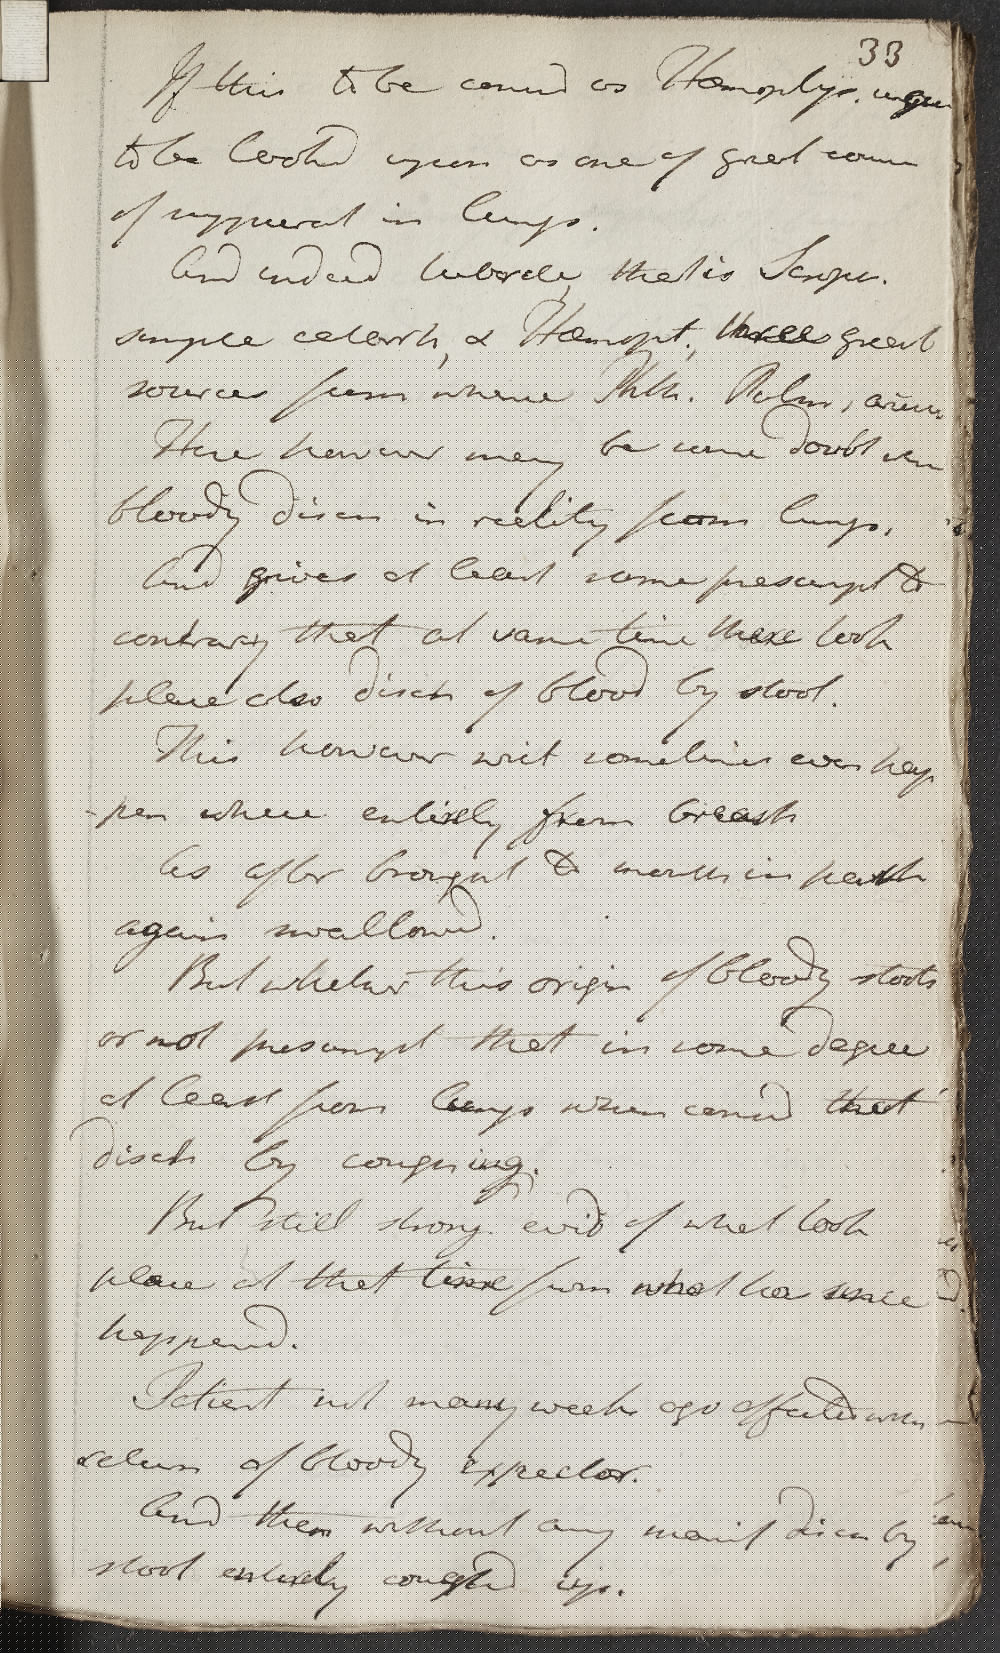 33
If this to be consid as Hæmoptys. 
to be lookd upon as one of great
of suppurat in lungs.
And indeed tubercle, that is Scroph.
simple catarrh, & Hæmopt., three great
sources from whence Phth. Pulm,
Here however may be some doubt
bloody disch in reality from lungs,
And gives at least some presumpt to
contrary that at same time there took
place also disch of blood by stool.
This however will sometimes even hap
-pen where entirely from breast
As after brought to mouth in part
again swallowd.
But whether this origin of bloody stools
or not presumpt that in some degree
at least from lungs when consid that
disch by coughing.
But still strong. evid of what took
place at that time from what has since
happend.
Patient not many weeks ago affected with
return of bloody expector.
And then without any manif disch by
stool entirely coughd up.